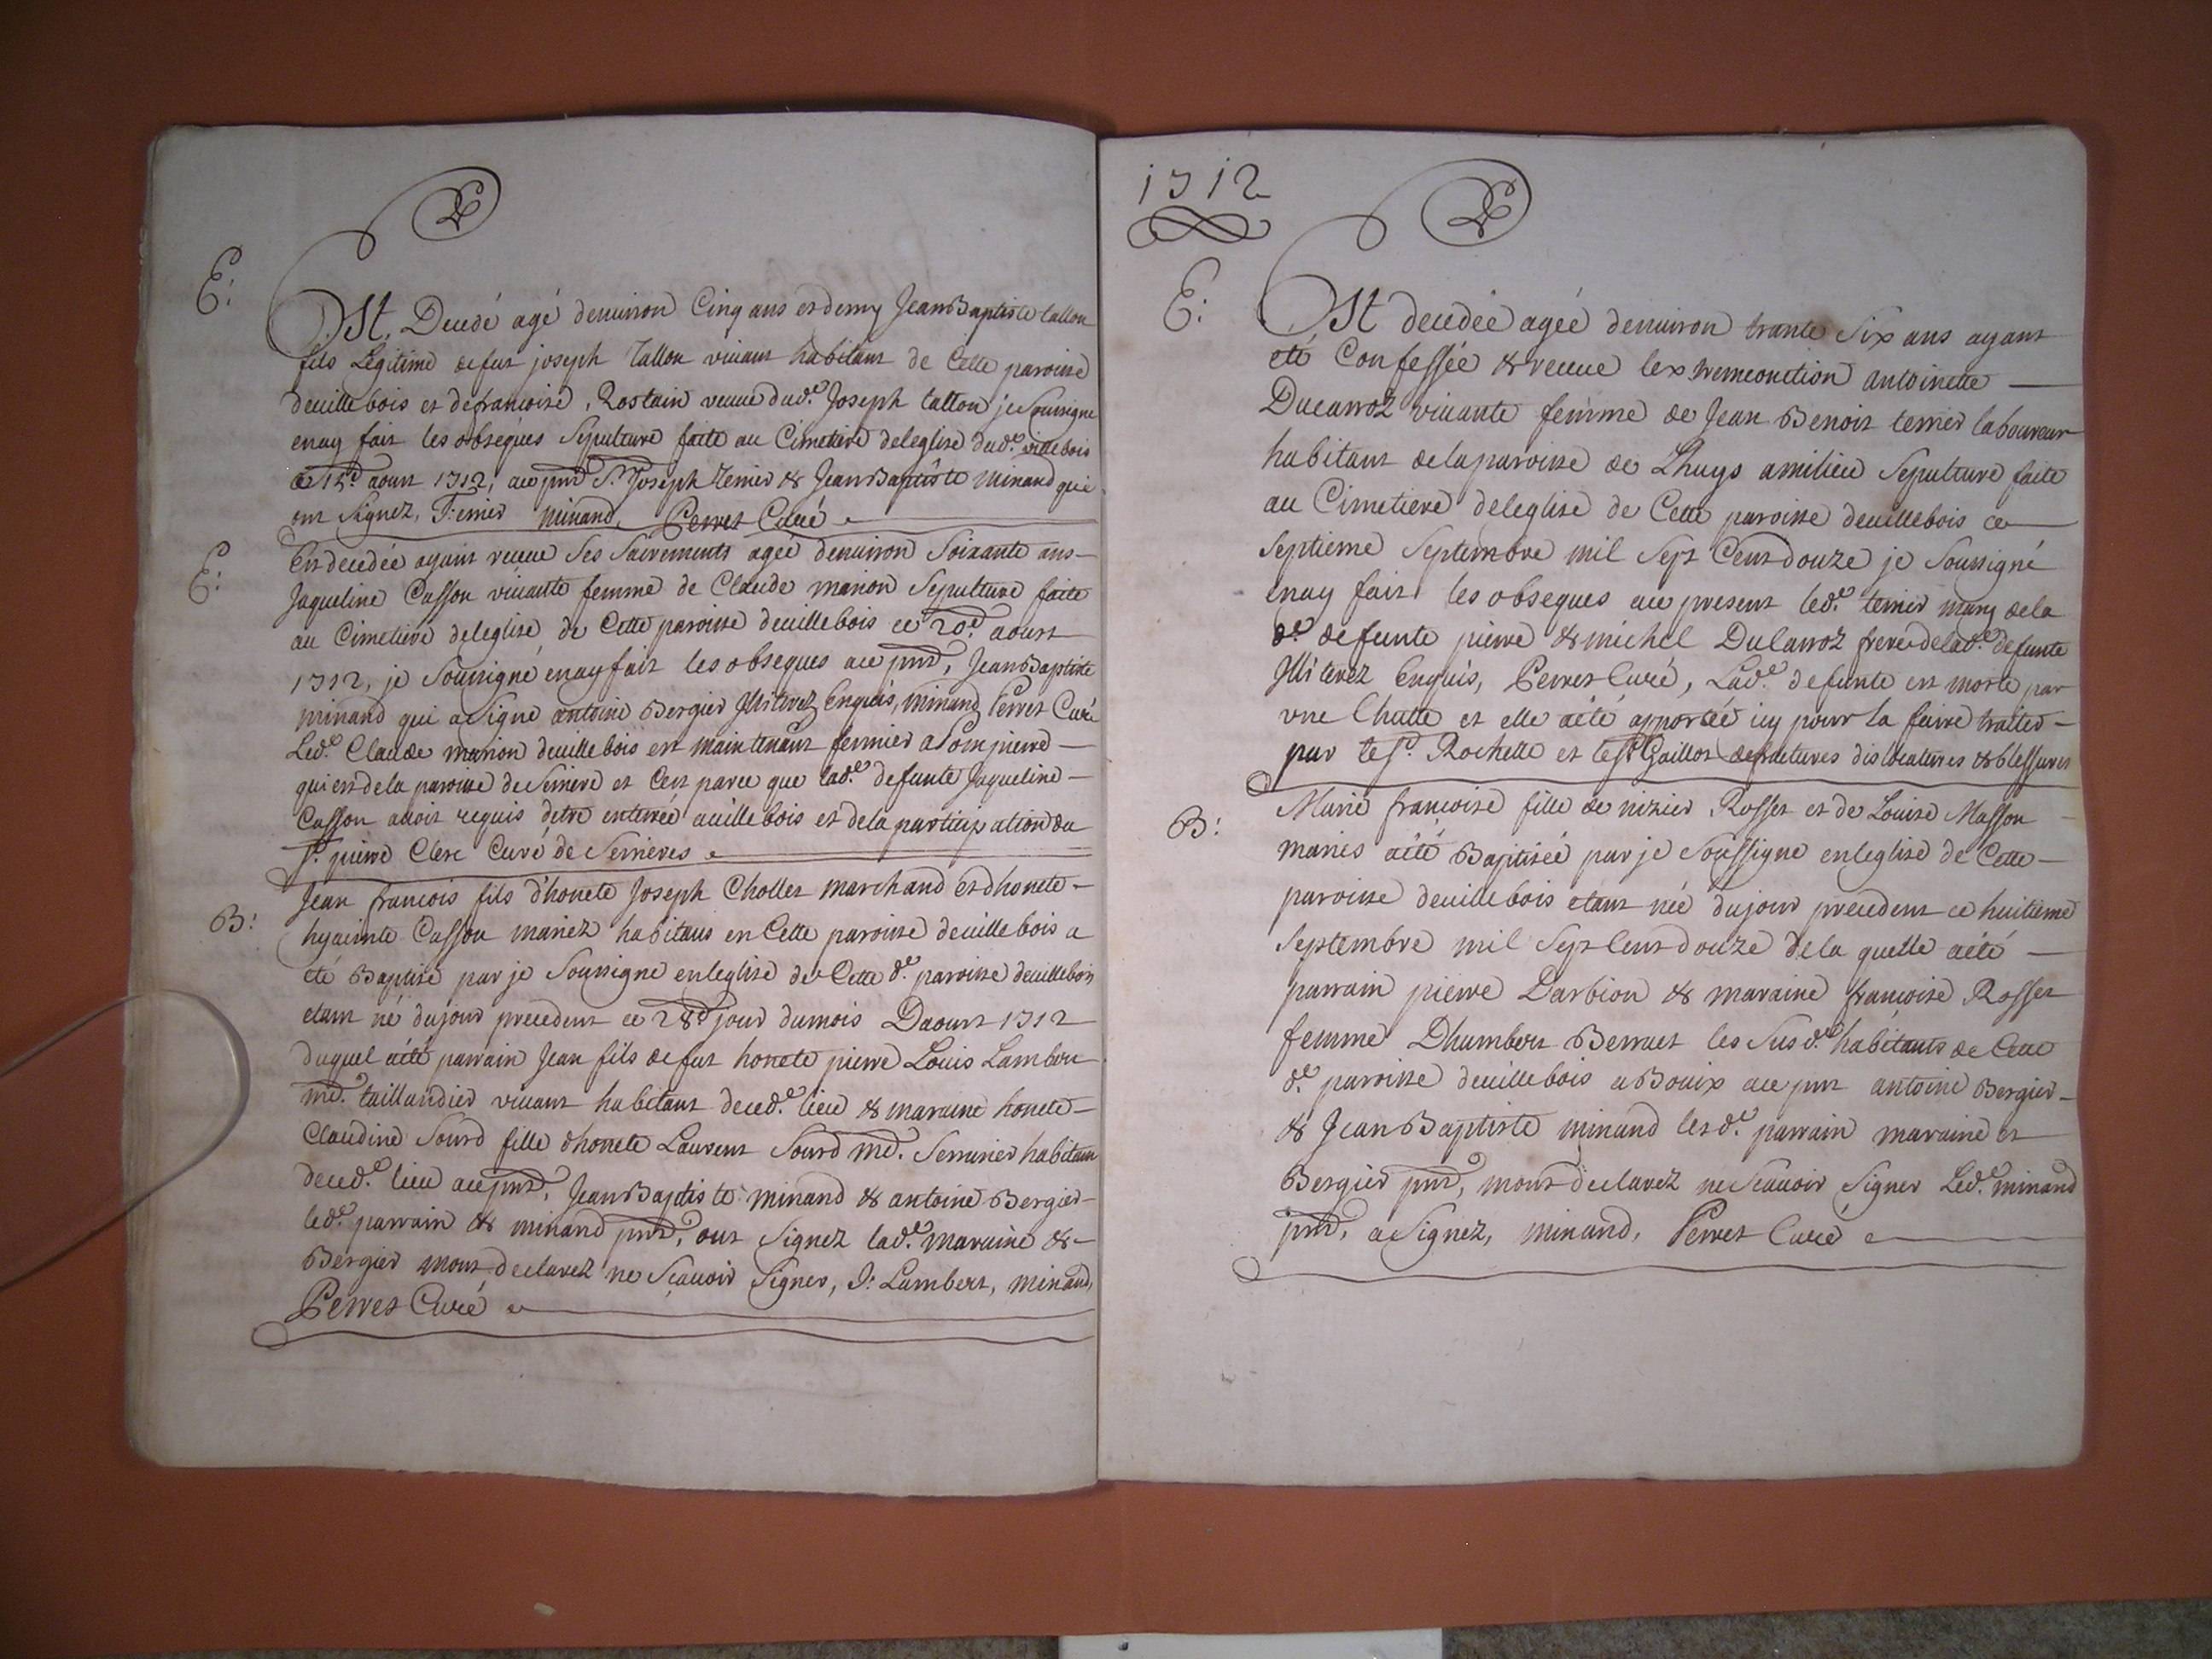 E:
Est Decedé agé denuiron Cinq ans et demy Jean Baptiste tallon
fils Legitime de fut joseph Tallon viuant habitant de Cette paroisse
deuillebois et defrancoise Rostain veuue dud.e Joseph tallon je Soussigne
enay fait les obseques Sepulture faite au Cimetiere deleglise dud.e villebois
ce aoust 1712, ace pnt S.r Joseph Ternier & Jean Baptiste minand qui
ont Signez, Ternier minand, Perret Curé
E:
Est decedée ayant receue Ses Sacrements agée denuiron Soixante ans
Jaqueline Casson viuante femme de Claude marion Sepulture faite
au Cimetiere deleglise de Cette paroisse deuillebois ce 20.e aoust
1712, je Soussigne enay fait les obseques ace pnt, Jean Baptiste
minand qui a Signe antoine Bergier Illiterez Enquis, minand Perret Curé
Led.e Claude marion deuillebois est maintenant fermier a Pompierre
qui est dela paroisse de Seriere et Cest parce que lad.e defunte Jaqueline
Casson auoit requis detre enterée auillebois et dela participation du
S.r pierre Clerc Curé de Serrieres
B:
Jean francois fils d'honete Joseph Chollet marchand et dhonete
hyacinte Casson mariez habitans en Cette paroisse deuillebois a
eté Baptise par je Soussigne enleglise de Cette d.e paroisse deuillebois
etant né dujour precedent ce 28.e jour dumois Daoust 1712
duquel aété parrain Jean fils de fut honete pierre Louis Lambert
md. taillandier viuant habitant deced.e lieu & maraine honete
Claudine Sourd fille dhonete Laurent Sourd md. Serrurier habitant
deced.e lieu ace pnt, Jean Baptiste minand & antoine Bergier
led.e parrain & minand pnt, ont Signez lad.e maraine &
Bergier mont declarez ne Scauoir Signer, J: Lambert, minand,
Perret Curé
1712
E:
Est decedée agée denuiron trante Six ans ayant
eté Confessée & receue lextremeonction antoinette
Ducarroz viuante femme de Jean Benoit ternier laboureur
habitant delaparoisse de Lhuys amilieu Sepulture faite
au Cimetiere deleglise de Cette paroisse deuillebois ce
Septieme Septembre mil Sept Cent douze je Soussigné
enay fait les obseques ace present led.e ternier mary dela
d.e defunte pierre & michel Ducarroz frere delad.e defunte
Illiterez Enquis, Perret Curé, Lad.e defunte est morte par
vne Chutte et elle aété apportée icy pour la faire traiter
par le S.r Rochette et le S.r Gaillot defractures dislocatures & blessures
B:
Marie francoise fille de nizier Rosset et de Louise Masson
mariés aété Baptisée par je Soussigne enleglise de Cette
paroisse deuillebois etant née dujour precedent ce huitieme
Septembre mil Sept Cent douze dela quelle aété
parrain pierre Darbion & maraine francoise Rosset
femme Dhumbert Berruet les Susd.e habitants de Cette
d.e paroisse deuillebois a Bouix ace pnt antoine Bergier
& Jean Baptiste minand lesd.e parrain maraine et
Bergier pnt, mont declarez ne Scauoir Signer Led.e minand
pnt, a Signez, minand, Perret Curé